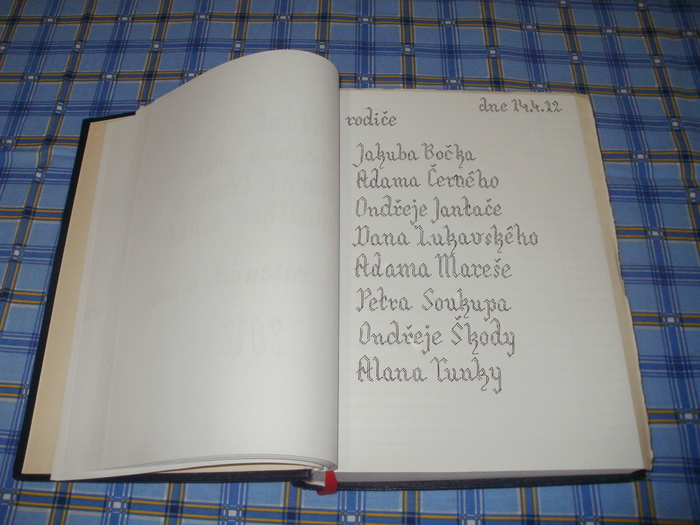 dne 14.4.12
rodiče
Jakuba Bočka
Adama Černého
Ondřeje Jantače
Dana Lukavského
Adama Mareše
Petra Soukupa
Ondřeje Škody
Alana Tunky